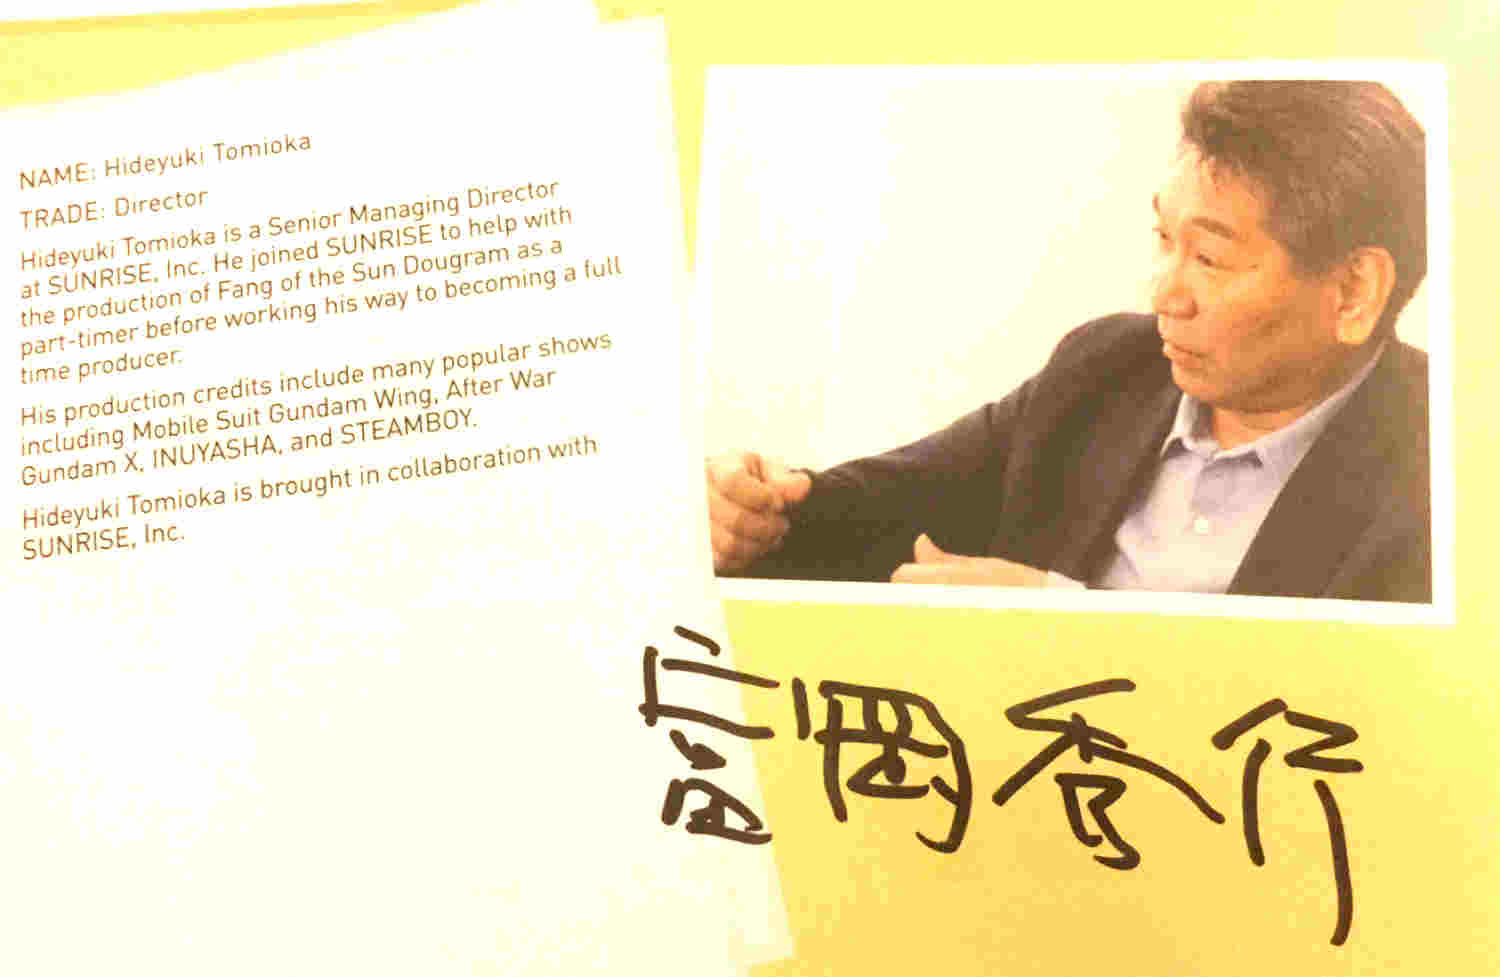 NAME: Hideyuki Tomioka
TRADE: Director
Hideyuki Tomioka is a Senior Managing Director
at SUNRISE, Inc. He joined SUNRISE to help with
the production of Fang of the Sun Dougram as a
part-timer before working his way to becoming a full
time producer.
His production credits include many popular shows
including Mobile Suit Gundam Wing, After War
Gundam X, INUYASHA, and STEAMBOY.
Hideyuki Tomioka is brought in collaboration with
SUNRISE, Inc.
富岡秀行